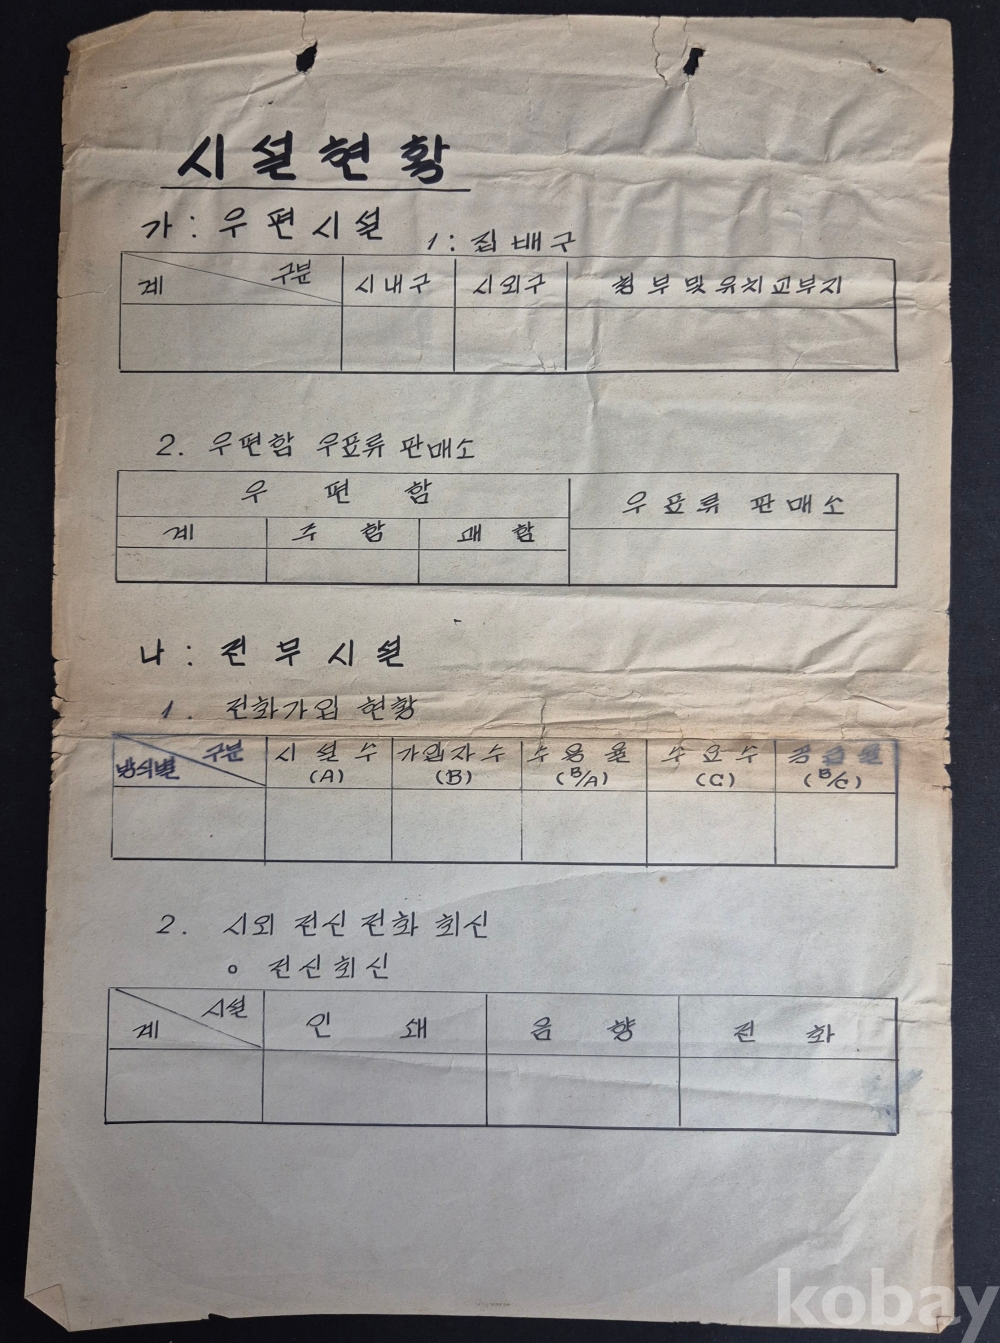 시설현황
가 : 우편시설
1 : 집배구
구분
계 시내구 시외구 청부및유치교부지
2. 우편함 우표류 판매소
우 편 함 우표류 판매소
계 주 함 괘 함
나 : 전무시설
1. 전화가입 현황
구분 시설수 가입자수 수용율 수요수 공급율
방식별 (A) (B) (B/A) (C) (B/C)
2. 시외 전신 전화 회신
o 전신회신
시설
계 인 쇄 음 향 전 화
kobay